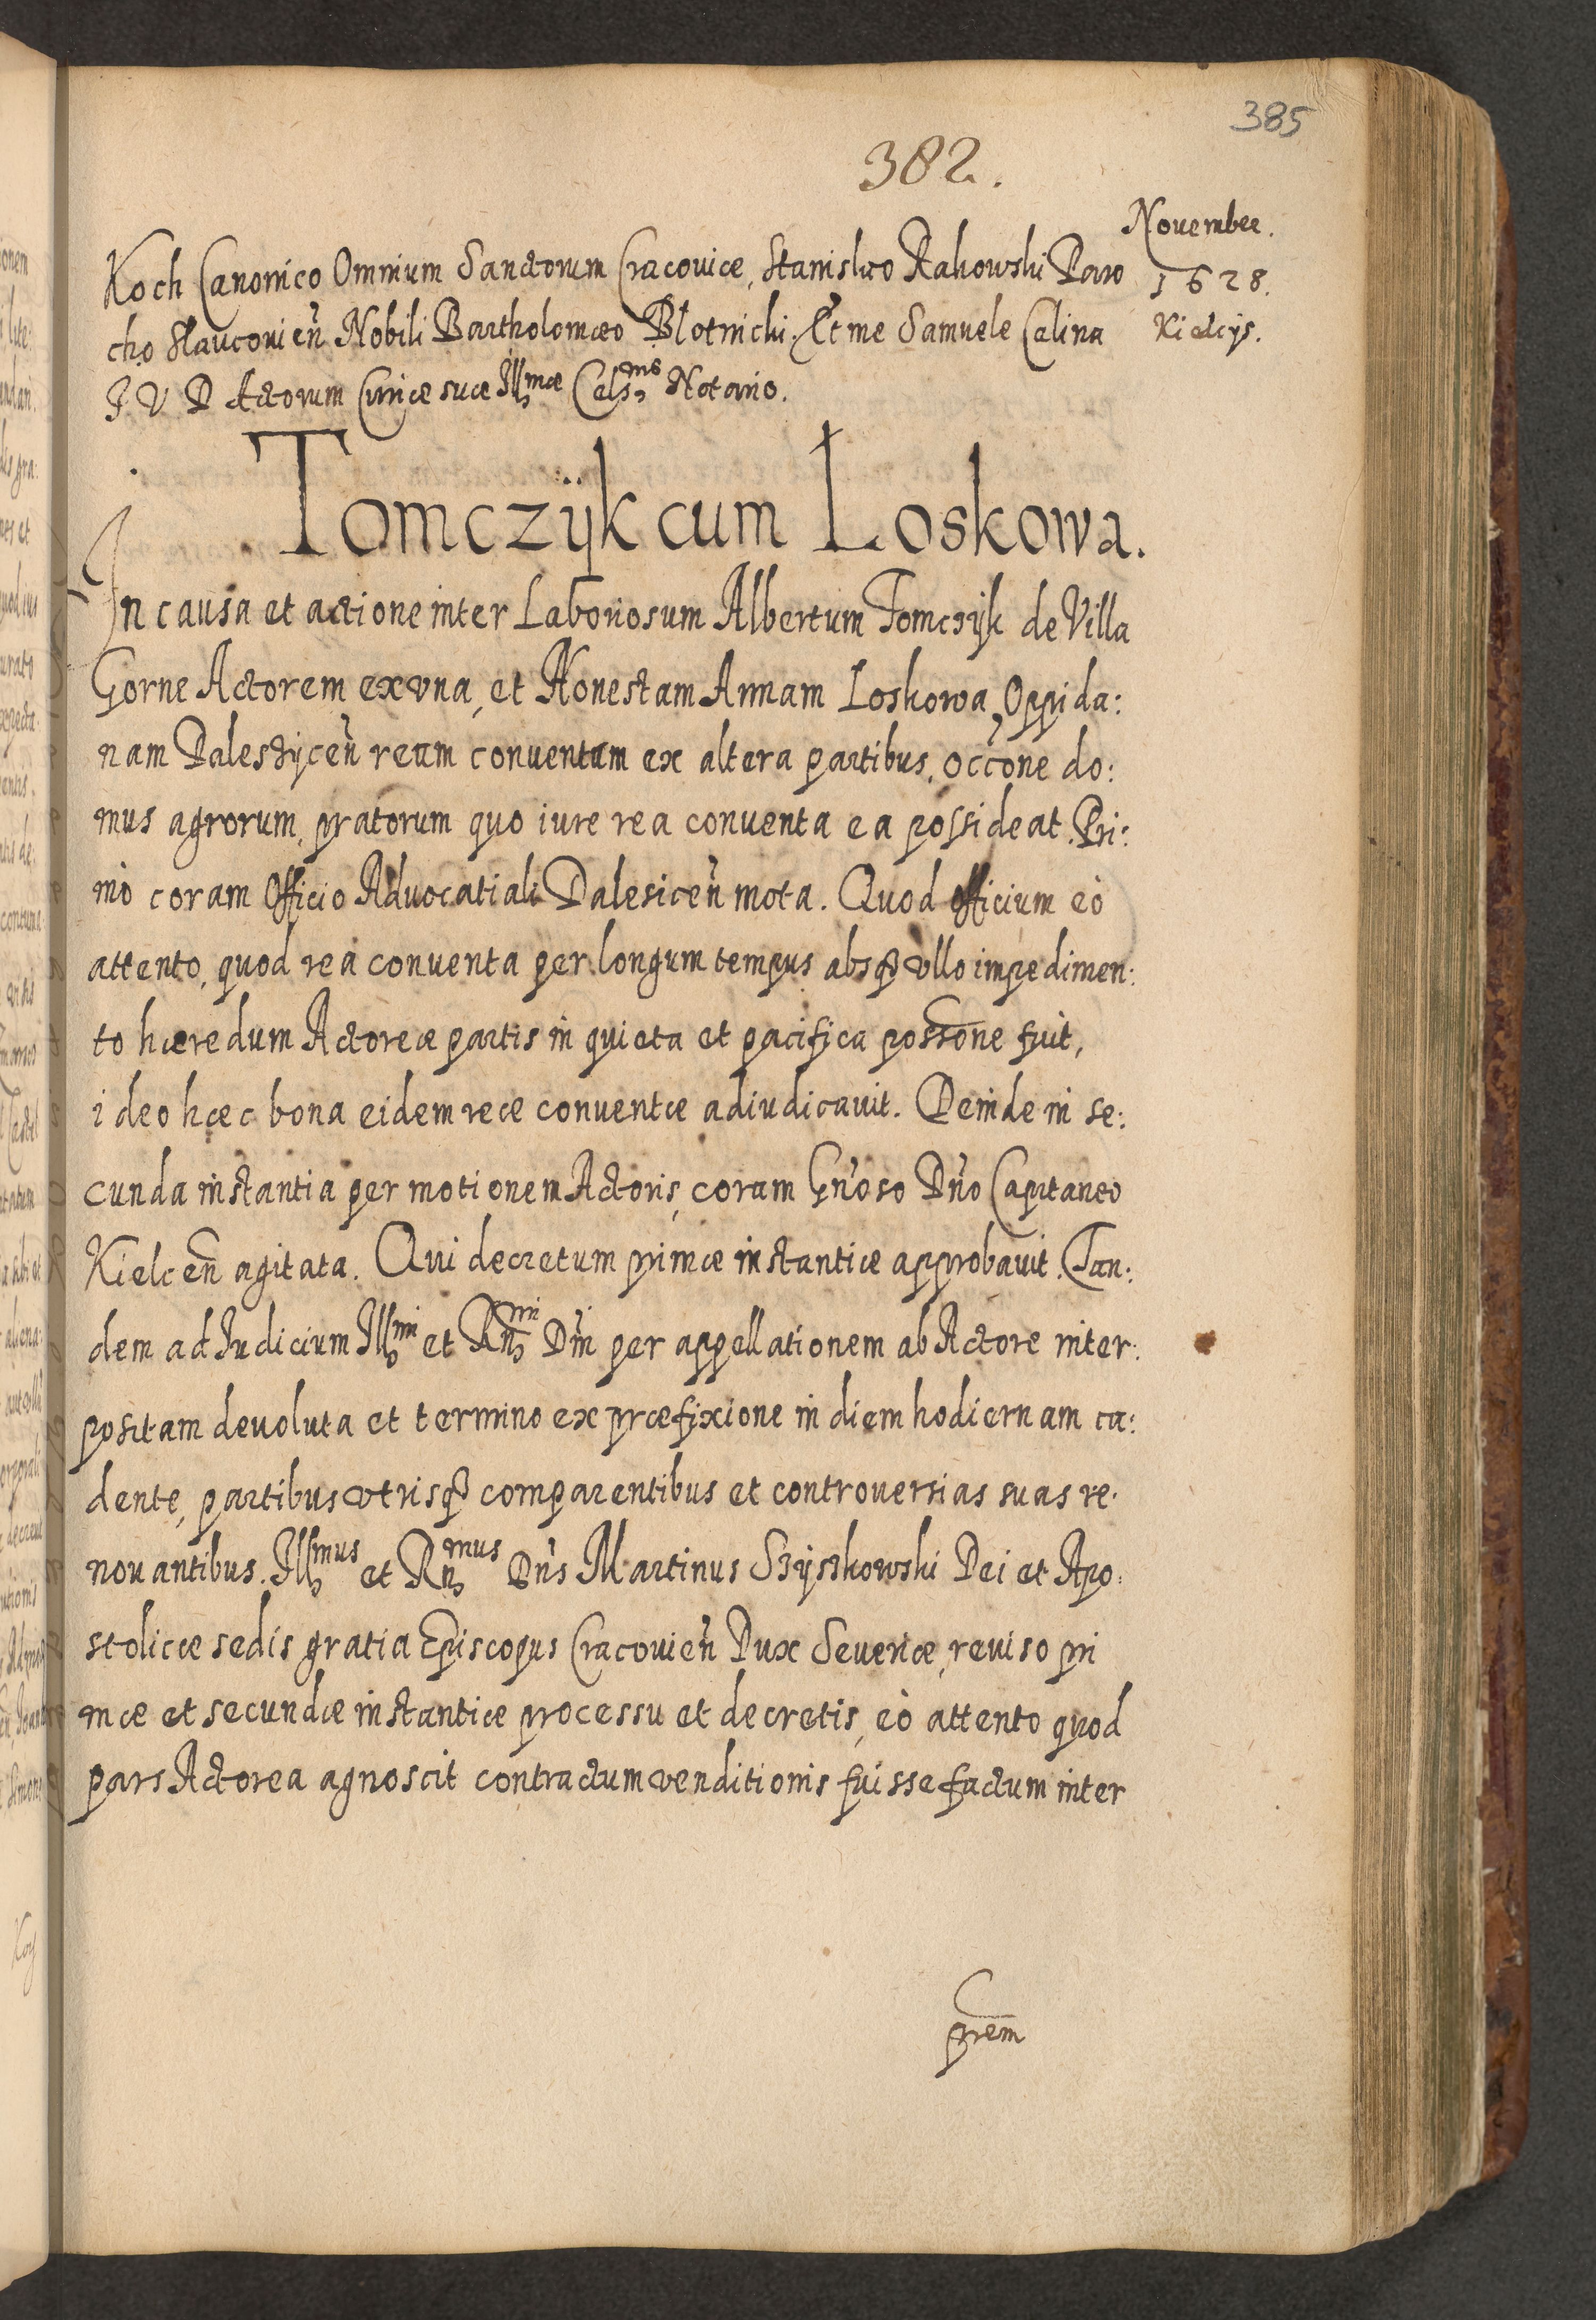 385
382.
Nouember.
1628.
Kielcijs.
Koch Canonico Omnium Sanctorum Cracouiæ, Stanislao Rakowski Paro
cho Slaucouien̄ Nobili Bartholomæo Blotnicki. Et me Samuele Celina
J V D Actorum Curiæ suæ Illmæ Celsms Notario.
Tomczÿk cum Loskowa.
In causa et actione inter Laboriosum Albertum Tomczÿk de Villa
Gorne Actorem ex vna, et Honestam Annam Loskowa Oppida:
nam Daleszÿcen̄ ream conuentam ex altera partibus, occōne do:
mus agrorum, pratorum quo iure rea conuenta ea possideat. Pri:
mò coram Officio Aduocatiali Dalesicen̄ mota. Quod officium eò
attento, quod rea conuenta per longum tempus absq₃ vllo impedimen:
to hæredum Actoreæ partis in quieta et pacifica possōne fuit,
ideo hæc bona eidem reæ conuentæ adiudicauit. Deinde in se:
cunda instantia per motionem Actoris, coram Gn̄oso Dn̄o Capitaneo
Kielcen̄ agitata. Qui decretum primæ instantiæ approbauit. Tan:
dem ad Judicium Illmi et Rnmi Dn̄i per appellationem ab Actore inter:
positam deuoluta et termino ex præfixione in diem hodiernam ca:
dente, partibus vtrisq₃ comparentibus et controuersias suas re:
nouantibus. Illmus et Rnmus Dn̄s Martinus Szÿszkowski Dei et Apo:
stolicæ sedis gratia Episcopus Cracouien̄ Dux Seueriæ, reuiso pri
mæ et secundæ instantiæ processu et decretis, eò attento quod
pars Actorea agnoscit contractum venditionis fuisse factum inter
prem